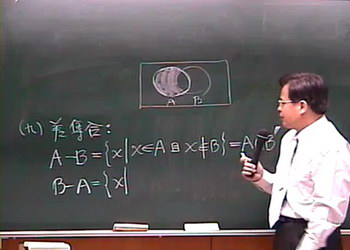 A B
(九) 差集合:
A-B={x|x∈A且x∉B}=A B
B-A={x|